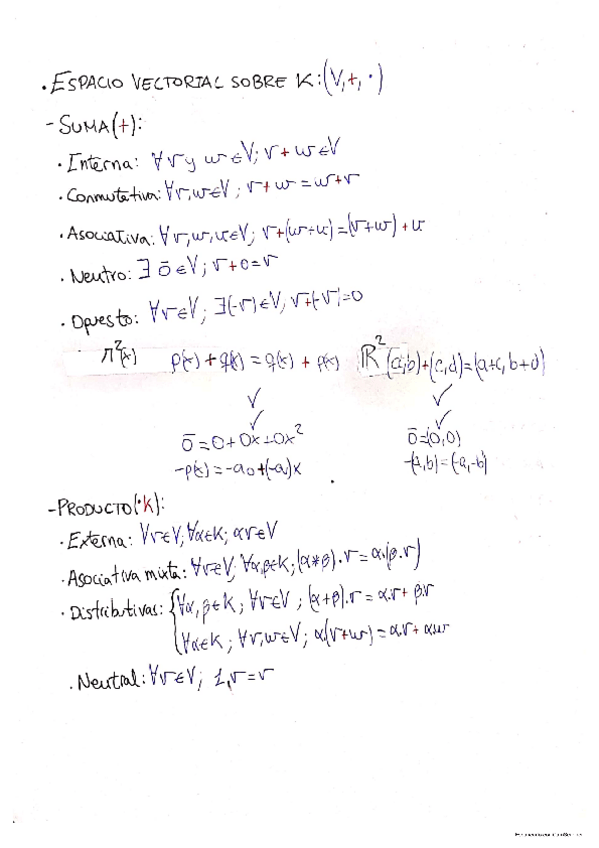 · ESPACIO VECTORIAL SOBRE K: (V, +, ·)
- SUMA (+):
· Interna: ∀ v y w ∈ V; v + w ∈ V
· Conmutativa: ∀ v, w ∈ V ; v + w = w + v
· Asociativa: ∀ v, w, u ∈ V; v + (w + u) = (v + w) + u
· Neutro: ∃ ō ∈ V ; v + o = v
· Opuesto: ∀ v ∈ V ; ∃ (-v) ∈ V, v + (-v) = 0
π²(x) p(x) + q(x) = q(x) + p(x) ℝ² (a,b) + (c,d) = (a+c, b+d)
✓ ✓
✓ ✓
ō = 0 + 0x + 0x² ō = (0,0)
-p(x) = -a₀ + (-a₁)x -(a,b) = (-a,-b)
- PRODUCTO (·K):
· Externa: ∀ v ∈ V, ∀ α ∈ K; αv ∈ V
· Asociativa mixta: ∀ v ∈ V, ∀ α, β ∈ K; (α * β) . v = α . (β . v)
· Distributivas: { ∀ α, β ∈ K ; ∀ v ∈ V ; (α + β) . v = α . v + β . v
∀ α ∈ K ; ∀ v, w ∈ V ; α (v + w) = α . v + α . w
· Neutral: ∀ v ∈ V ; 1 . v = v